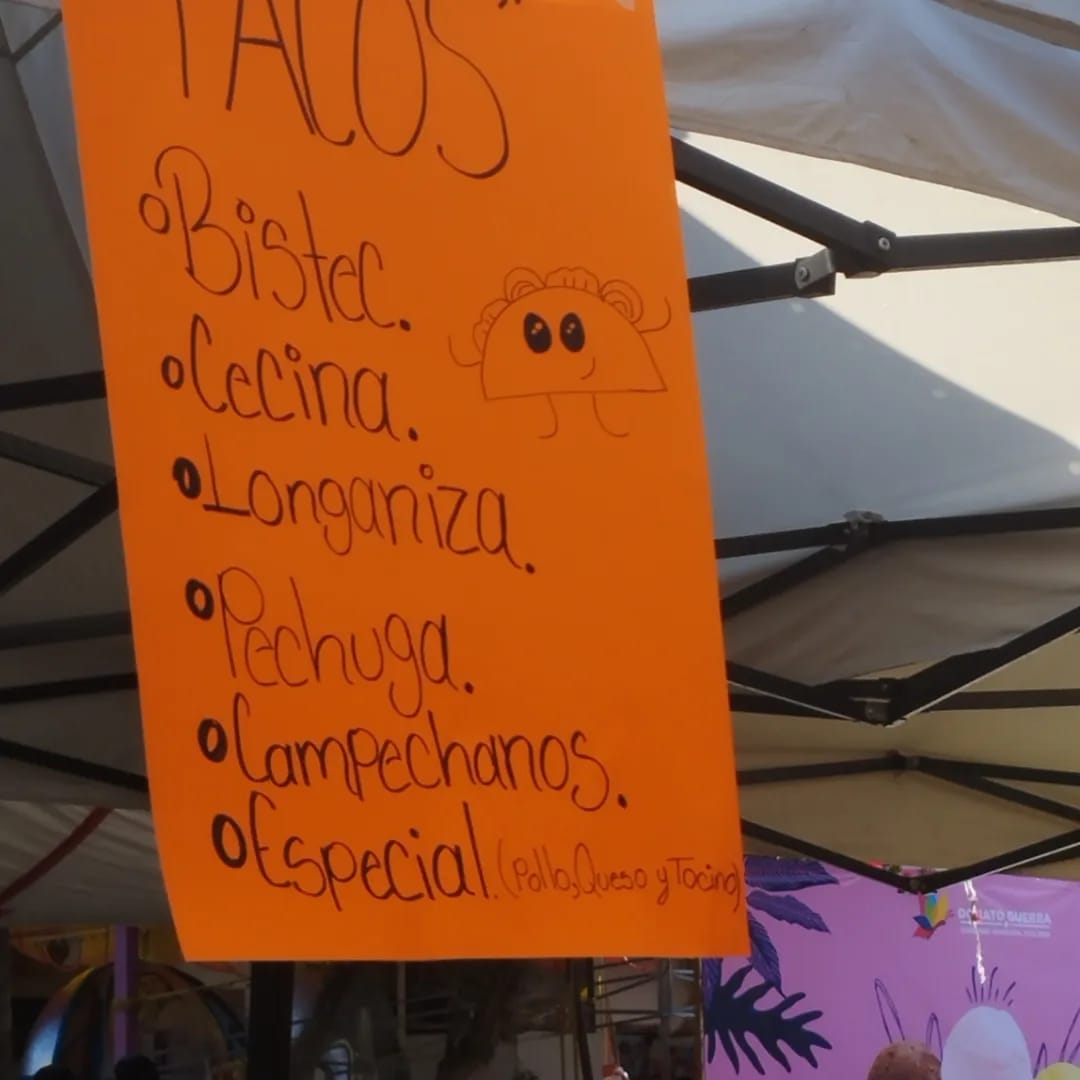 TACOS"
Bistec.
Cecina.
Longaniza.
Pechuga.
Campechanos.
Especial. (Pollo, Queso y Tocino)
DONATO GUERRA